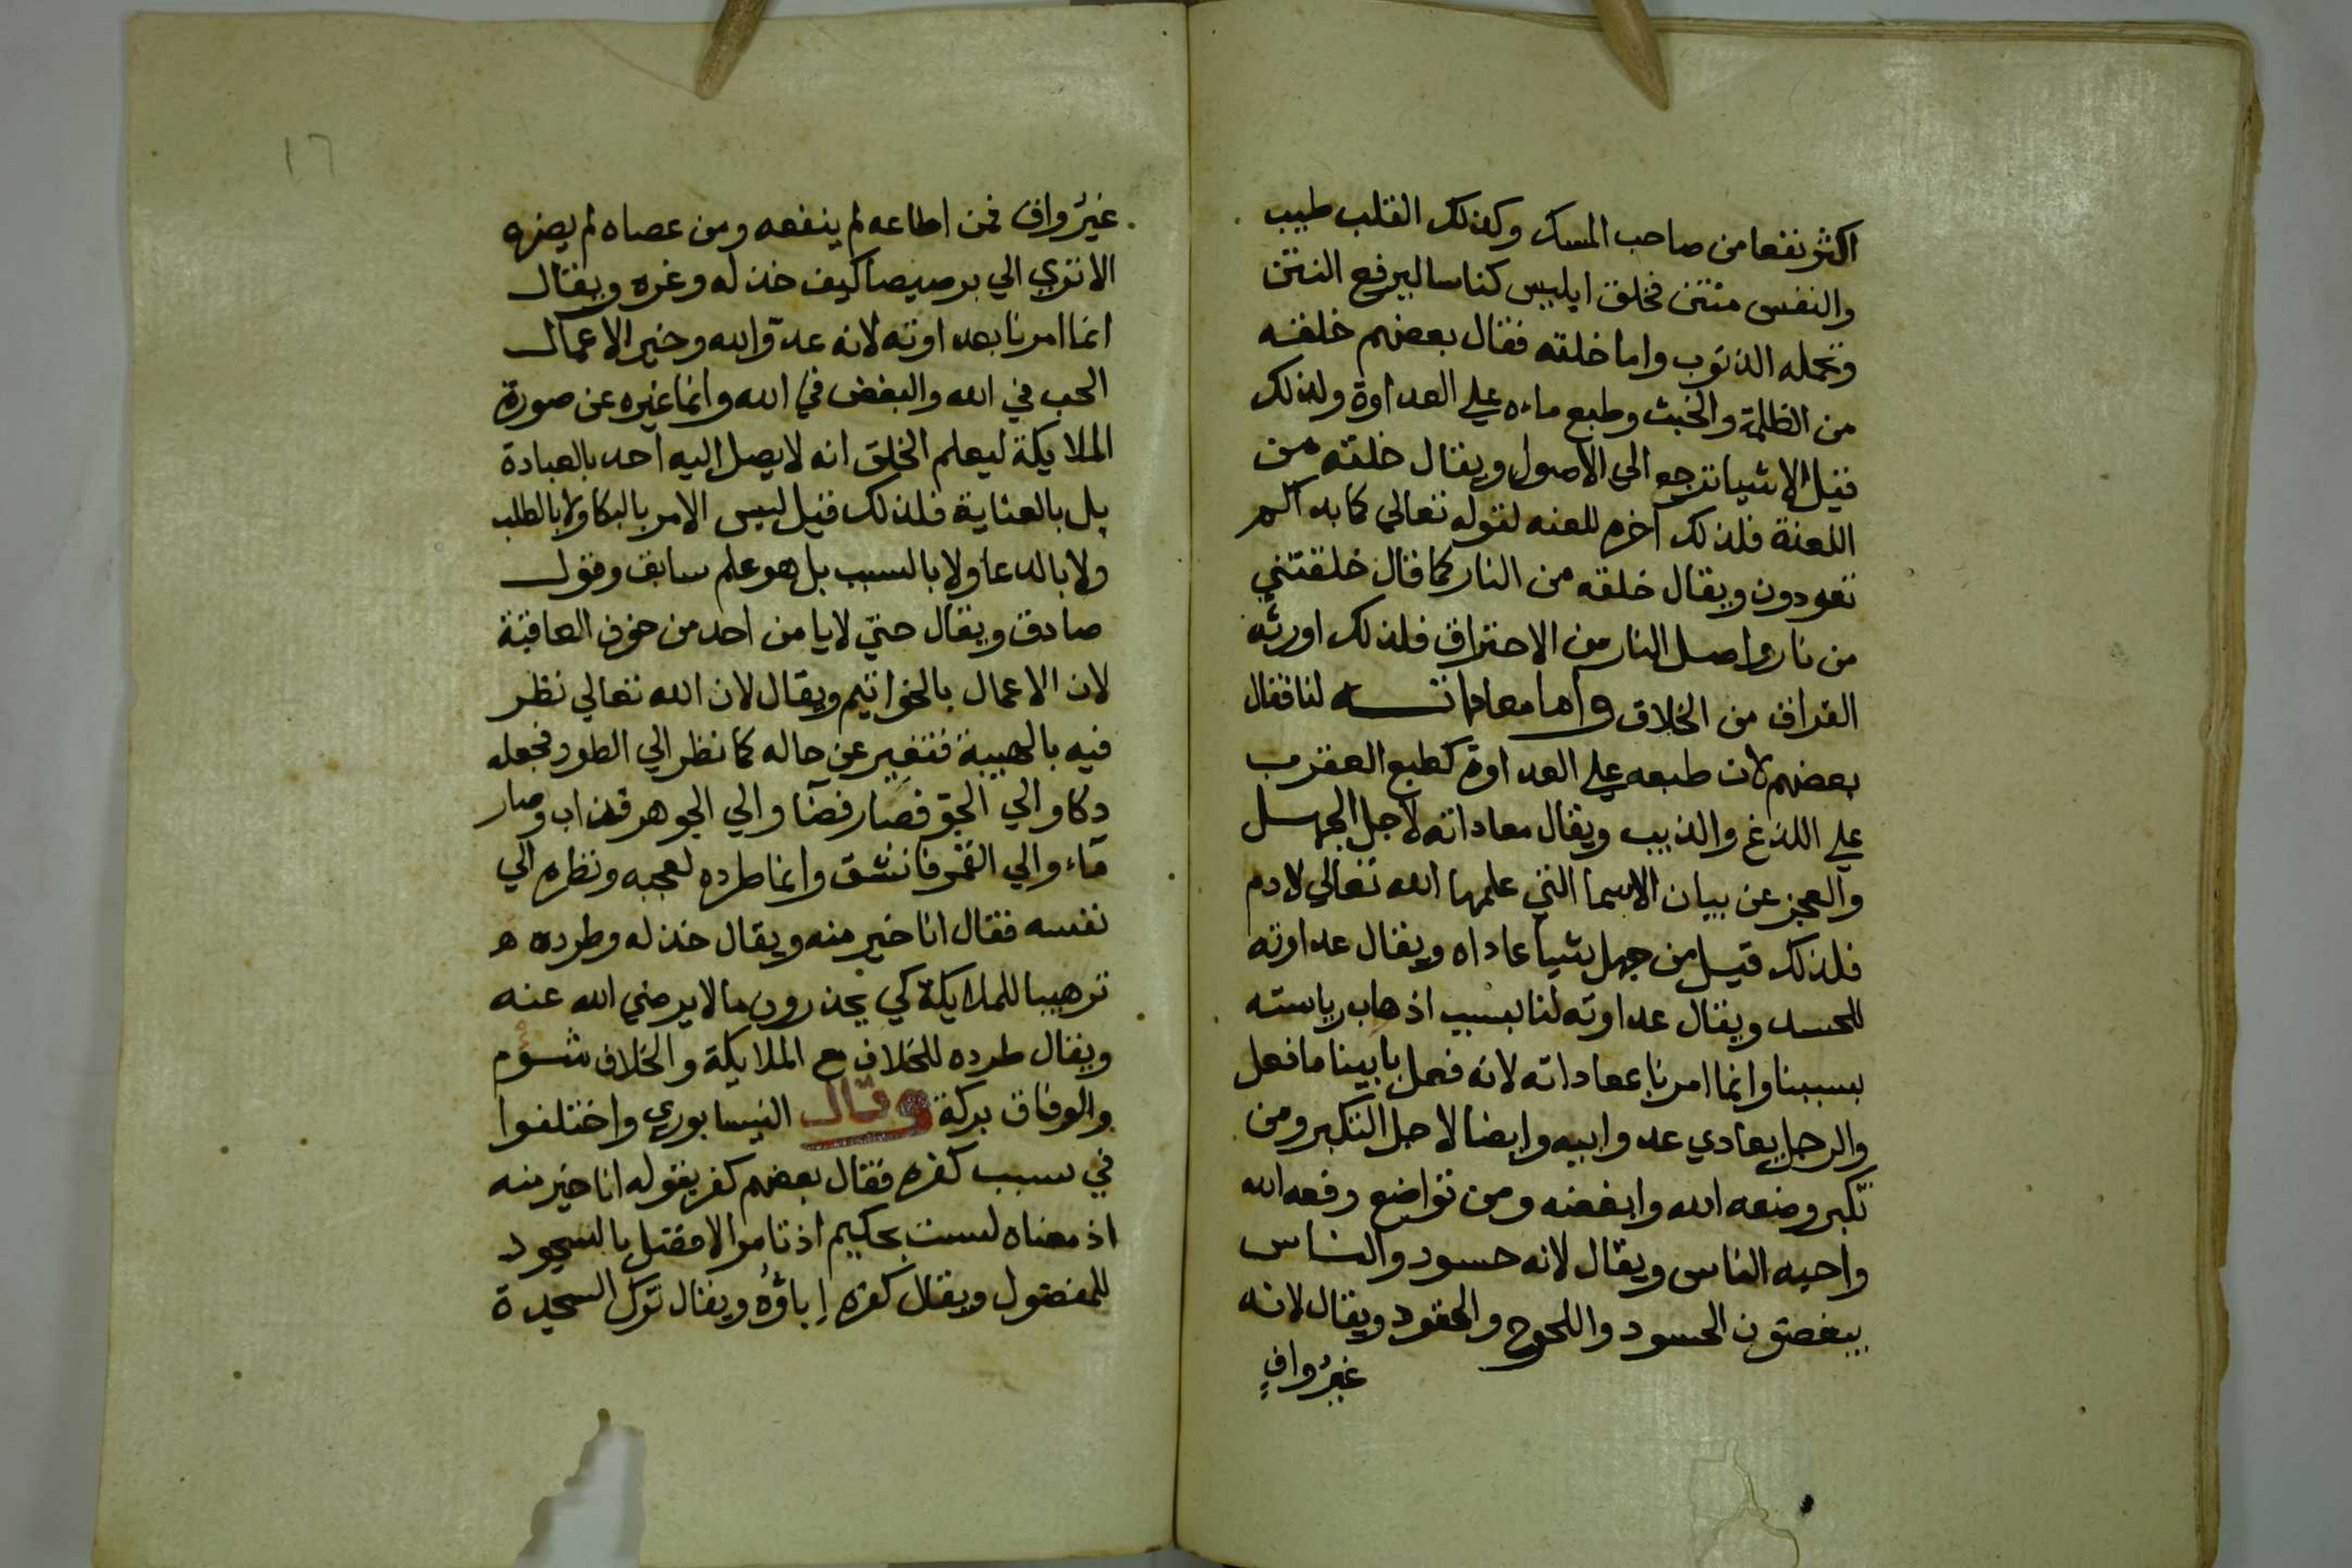 اكثر نفعا من صاحب المسك وكذلك القلب طبيب
والنفس منتن فخلق ابليس كناسا ليرفع النتن
وتحمله الذنوب واما خلقه فقال بعضهم خلقه
من الظلمة والخبث وطبع ماءه علي العداوة ولذلك
قيل الاشيا ترجع الي الاصول ويقال خلقه من
اللعنة فلذلك آخره للعنه لقوله تعالي كما بداكم
تعودون ويقال خلقه من النار كما قال خلقتني
من نار واصل النار من الاحتراق فلذلك اورثه
الفراق من الخلاق واما معاداتــه لنا فقال
بعضهم لان طبعه علي العداوة كطبع العقرب
علي اللذغ والذيب ويقال معاداته لاجل الجهل
والعجز عن بيان الاسما التي علمها الله تعالي لادم
فلذلك قيل من جهل شيا عاداه ويقال عداوته
للحسد ويقال عداوته لنا بسبب اذهاب رياسته
بسببنا وانما امرنا بمعاداته لانه فعل بابينا ما فعل
والرجل يعادي عدو ابيه وايضا لاجل التكبر ومن
تكبر وضعه الله وابغضه ومن تواضع رفعه الله
واحبه الناس ويقال لانه حسود والناس
يبغضون الحسود واللحوح والحقود ويقال لانه
غيرُ وافٍ
١٦
غيرُ واف فمن اطاعه لم ينفعه ومن عصاه لم يضره
الا تري الي برصيصا كيف خذله وغره ويقال
انما امرنا بعداوته لانه عدوّ الله وخير الاعمال
الحب في الله والبغض في الله وانما غيره عن صورة
الملايكة ليعلم الخلق انه لا يصل اليه احد بالعبادة
بل بالعناية فلذلك قيل ليس الامر بالبكا ولا بالطلب
ولا بالدعا ولا بالسبب بل هو علم سابق وقول
صادق ويقال حتي لا يامن احد من خوف العاقبة
لان الاعمال بالخواتيم ويقال لان الله تعالي نظر
فيه بالهيبة فتغير عن حاله كما نظر الي الطور فجعله
دكا والي الجو فصار فضآ والي الجوهر فذاب وصار
ماء والي القمر فانشق وانما طرده لعجبه ونظره الي
نفسه فقال انا خير منه ويقال خذله وطرده ه
ترهيبا للملايكة كي يحذرون ما لا يرضي الله عنه
ويقال طرده للخلاف مع الملايكة والخلاف شؤم
والوفاق بركة وقال النيسابوري واختلفوا
في سبب كفره فقال بعضهم كفر بقوله انا خير منه
اذ معناه لست بحكيم اذ تامر الافضل بالسجود
للمفضول ويقال كفره إباؤُه ويقال ترك السجدة